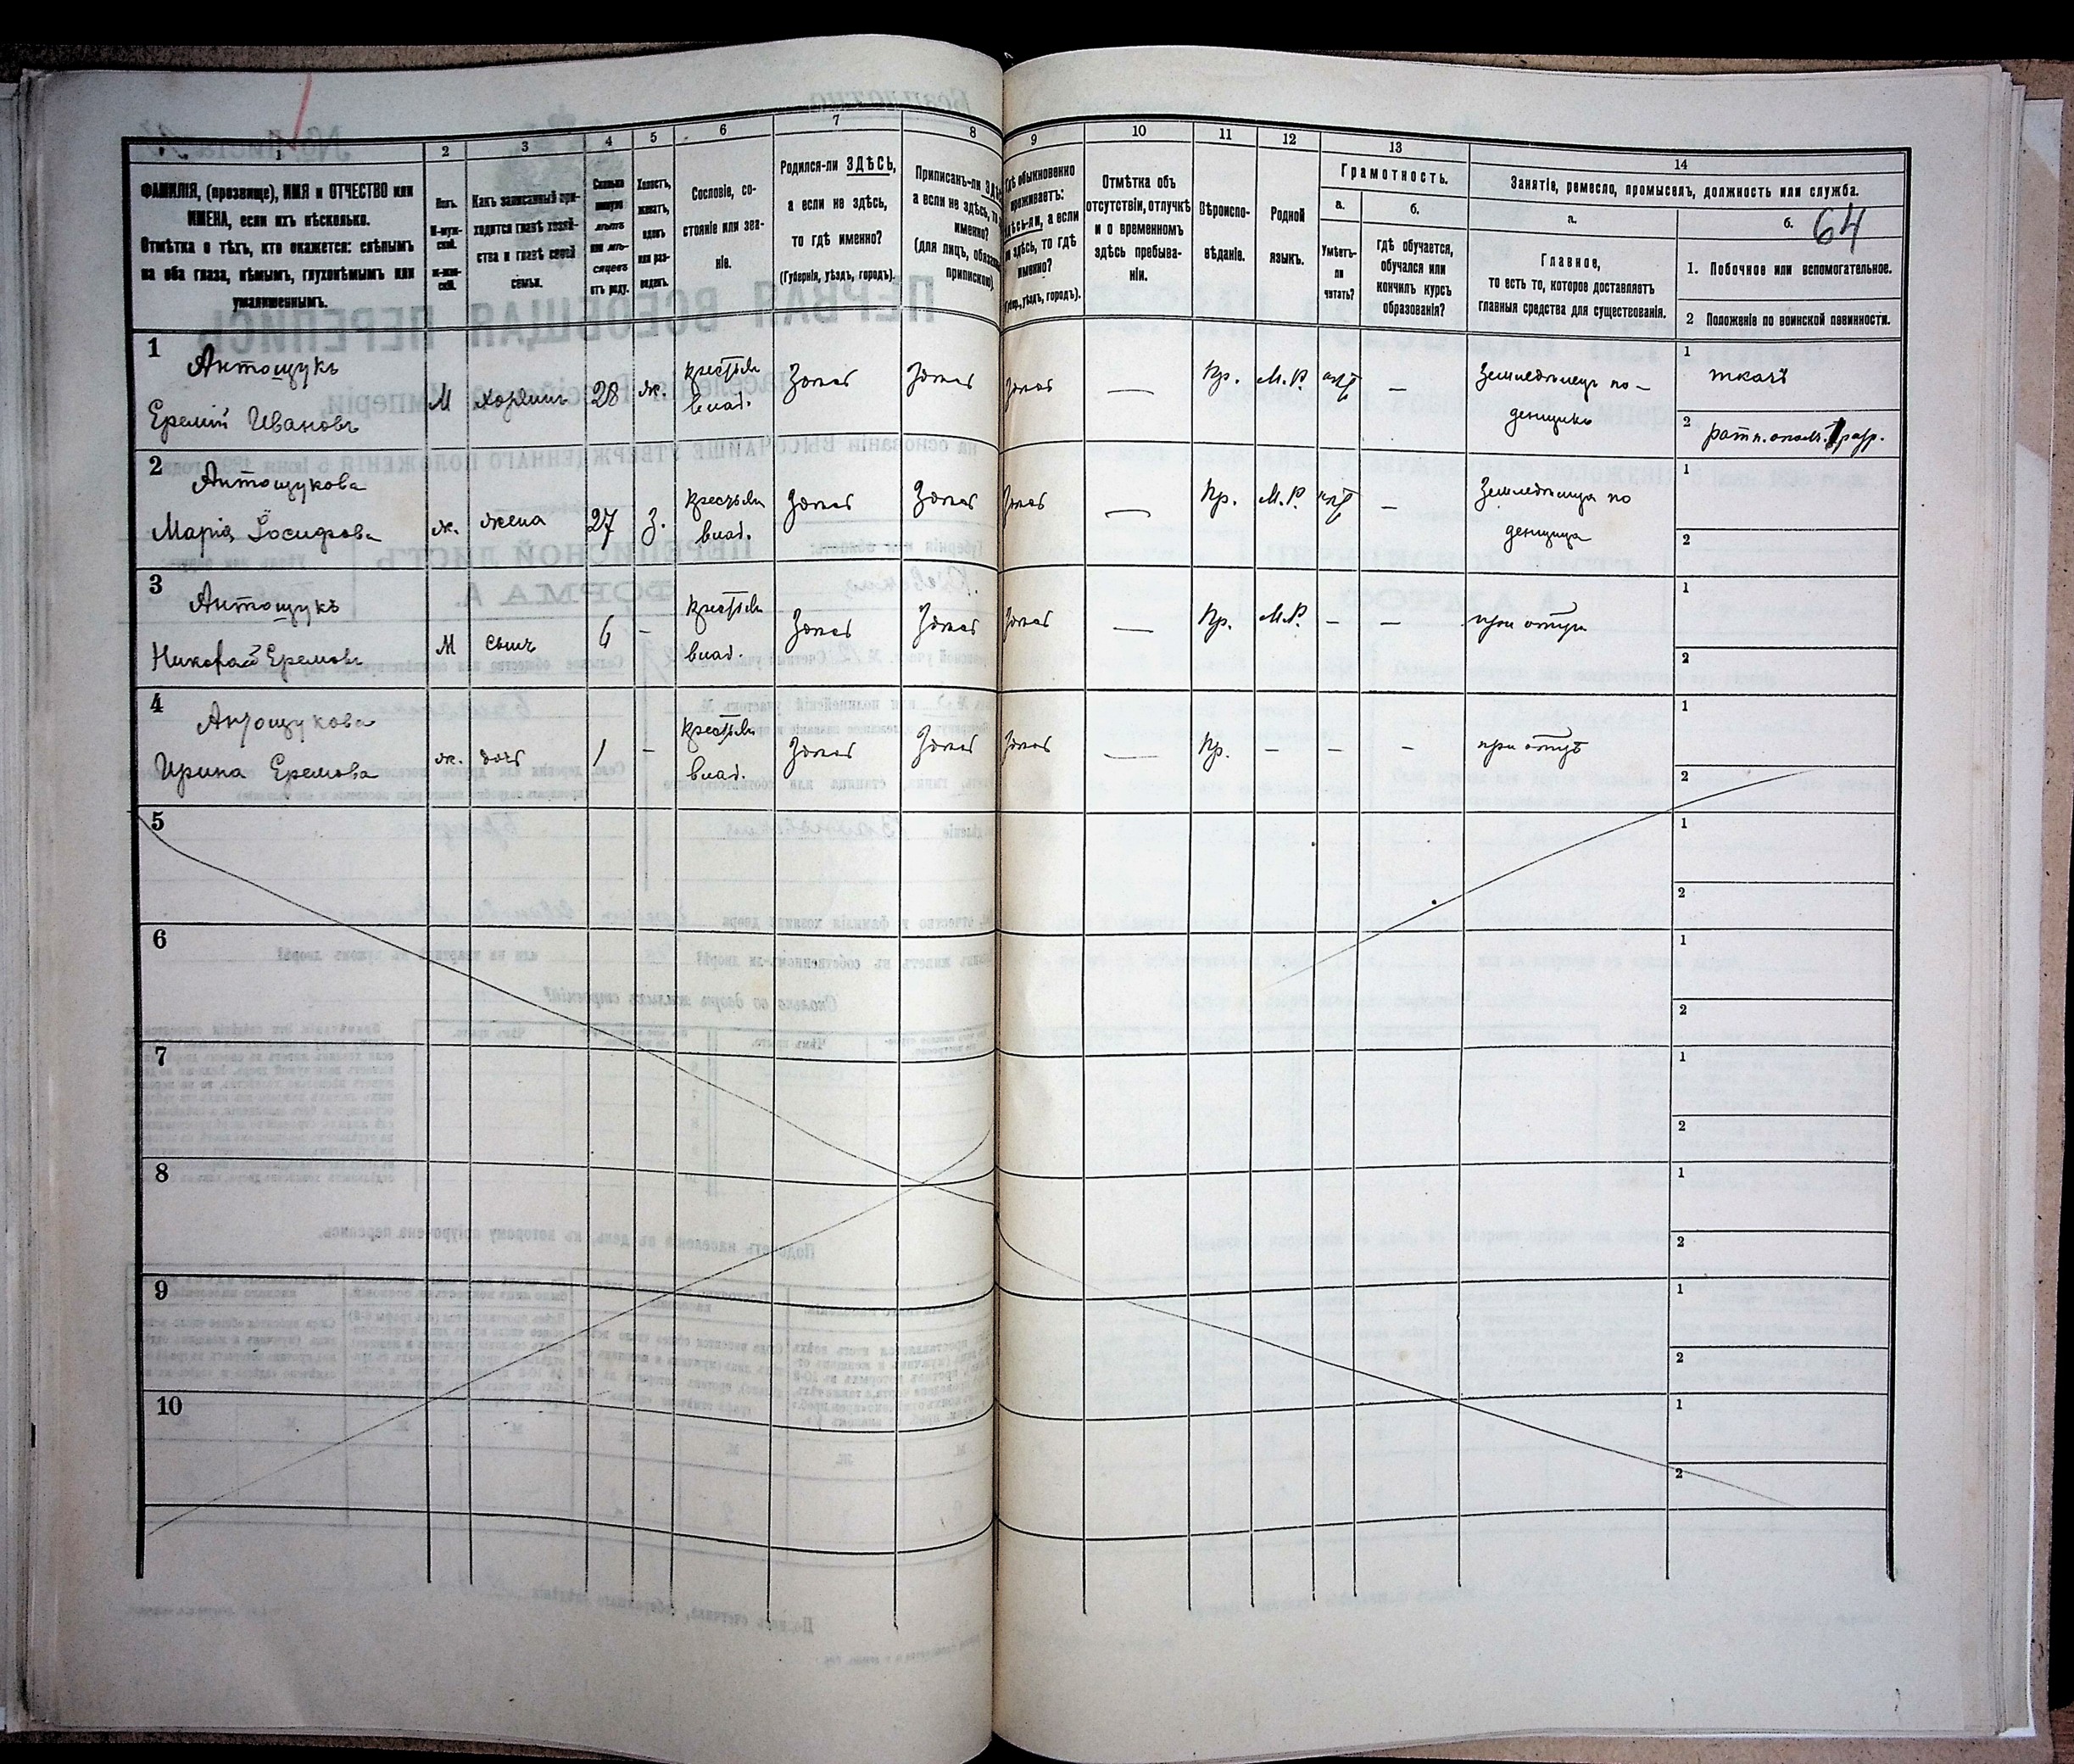 1
2
3
4
5
6
7
8
9
10
11
12
13
14
ФАМИЛІЯ, (прозвище), ИМЯ и ОТЧЕСТВО или
ИМЕНА, если ихъ нѣсколько.
Отмѣтка о тѣхъ, кто окажется: слѣпымъ
на оба глаза, нѣмымъ, глухонѣмымъ или
умалишеннымъ.
Полъ.
М-муж-
ской.
ж-жен-
скій.
Какъ записанный при-
ходится главѣ хозяй-
ства и главѣ своей
семьи.
Сколько
минуло
лѣтъ
или мѣ-
сяцевъ
отъ роду.
Холостъ,
женатъ,
вдовъ
или раз-
веденъ.
Сословіе, со-
стояніе или зва-
ніе.
Родился-ли ЗДѢСЬ,
а если не здѣсь,
то гдѣ именно?
(Губернія, уѣздъ, городъ).
Приписанъ-ли
а если не здѣсь,
именно?
(для лицъ,
припискою)
обыкновенно
проживаетъ:
а если
здѣсь, то гдѣ
именно?
уѣздъ, городъ).
Отмѣтка объ
отсутствіи, отлучкѣ
и о временномъ
здѣсь пребыва-
ніи.
Вѣроиспо-
вѣданіе.
Родной
языкъ.
Грамотность.
а.
б.
Умѣетъ-
ли
читать?
гдѣ обучается,
обучался или
кончилъ курсъ
образованія?
Занятіе, ремесло, промыселъ, должность или служба.
а.
б.
64
Главное,
то есть то, которое доставляетъ
главныя средства для существованія.
1. Побочное или вспомогательное.
2 Положеніе по воинской повинности.
1
Антощукъ
Еремій Ивановъ
М
хозяинъ
28
ж.
крестьян
влад.
Здѣсь
Здѣсь
Здѣсь
—
Пр.
М.Р.
—
Земледѣлецъ по-
денщикъ
1
ткачъ
2
ратн. опол. 1 разр.
2
Антощукова
Марія Іосифова
ж.
жена
27
З.
крестьян
влад.
Здѣсь
Здѣсь
Здѣсь
—
Пр.
М.Р.
—
Земледѣлица по
денщица
1
2
3
Антощукъ
Николай Еремовъ
М
сынъ
6
–
крестьян
влад.
Здѣсь
Здѣсь
Здѣсь
—
Пр.
М.Р.
–
—
при отцѣ
1
2
4
Антощукова
Ирина Еремова
ж.
дочь
1
–
крестьян
влад.
Здѣсь
Здѣсь
Здѣсь
—
Пр.
–
–
–
при отцѣ
1
2
5
1
2
6
1
2
7
1
2
8
1
2
9
1
2
10
1
2